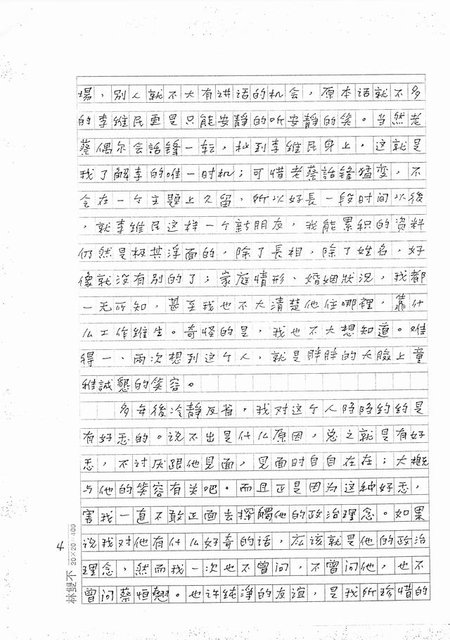 場，別人就不大有讲话的机会，原本话就不多
的李维民更是只能安靜的听安靜的笑。当然老
蔡偶尔会話鋒一転，扯到李维民身上，这就是
我了解李的唯一时机；可惜老蔡話鋒猛变，不
会在一个主題上久留，所以好長一段时间以後
，就李维民这样一个新朋友，我能累积的資料
仍然是极其浮面的，除了長相，除了姓名，好
像就没有別的了；家庭情形、婚姻狀況，我都
一无所知，甚至我也不大清楚他住哪裡，靠什
么工作维生。奇怪的是，我也不太想知道。唯
得一、两次想到这个人，就是胖胖的大臉上童
稚誠懇的笑容。
多年後冷靜反省，我对这个人時時約約是
有好感的。说不出是什么原因，总之就是有好
感，不讨厌跟他见面，见面时自自在在；大概
与他的笑容有关吧。而且正是因为这种好感，
害我一直不敢正面去探觸他的政治理念。如果
说我对他有什么好奇的话，应该就是他的政治
理念，然而我一次也不曾问，不曾问他，也不
曾问蔡恒翹。也许純淨的友谊，是我所珍惜的
4
20×20=400